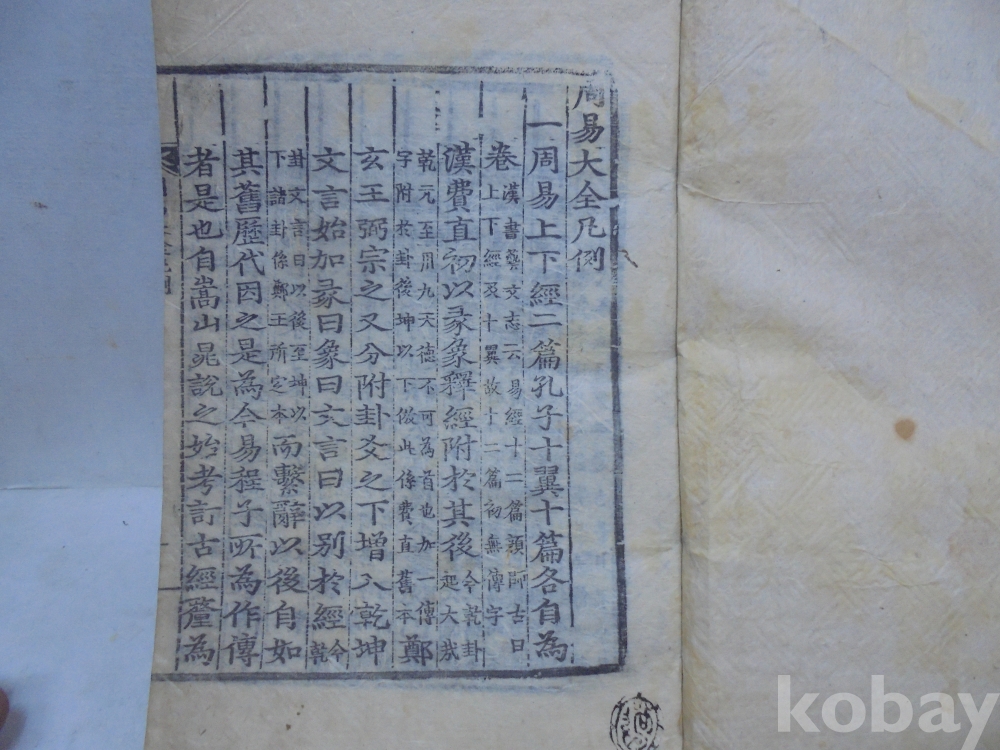 周易大全凡例
一周易上下經二篇孔子十翼十篇各自為
卷
漢書藝文志云易經十二篇顔師古曰
上下經及十翼故十二篇初無傳字
漢費直初以彖象釋經附於其後
今乾卦
起大哉
乾元至用九天德不可為首也加一傳
字附於卦後坤以下倣此係費直舊本
鄭
玄王弼宗之又分附卦爻之下增入乾坤
文言始加彖曰象曰文言曰以別於經
今
乾
卦文言曰以後至坤以
下諸卦係鄭王所定本
而繫辭以後自如
其舊歷代因之是為今易程子所為作傳
者是也自嵩山晁說之始考訂古經釐為
kobay